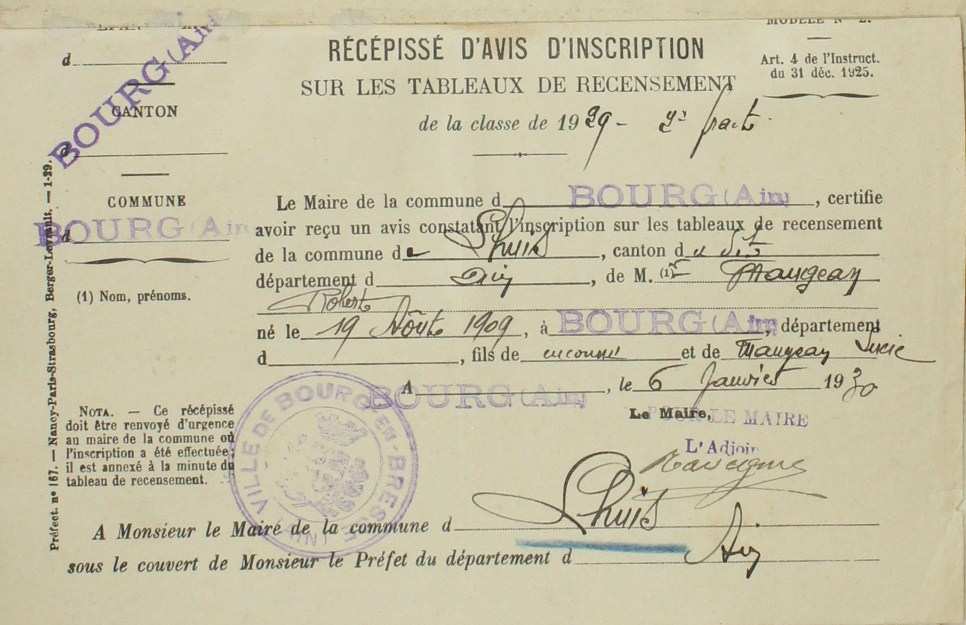 MODÈLE N° 2.
RÉCÉPISSÉ D'AVIS D'INSCRIPTION
SUR LES TABLEAUX DE RECENSEMENT
de la classe de 1929 -
Art. 4 de l'Instruct.
du 31 déc. 1925.
d
BOURG (Ain)
CANTON
d
COMMUNE
d BOURG (Ain)
(1) Nom, prénoms.
Le Maire de la commune d BOURG (Ain), certifie
avoir reçu un avis constatant l'inscription sur les tableaux de recensement
de la commune de Lhuis, canton d u dit
département d Ain, de M. (1) Maugean
Robert
né le 19 Août 1909, à BOURG (Ain), département
d , fils de inconnu et de Maugean Lucie
A BOURG (Ain), le 6 Janvier 1930
Le Maire,
POUR LE MAIRE
L'Adjoint
VILLE DE BOURG-EN-BRESSE
NOTA. — Ce récépissé
doit être renvoyé d'urgence
au maire de la commune où
l'inscription a été effectuée;
il est annexé à la minute du
tableau de recensement.
A Monsieur le Maire de la commune d Lhuis
sous le couvert de Monsieur le Préfet du département d Ain
Préfect. n° 167. — Nancy-Paris-Strasbourg, Berger-Levrault. — 1-29.